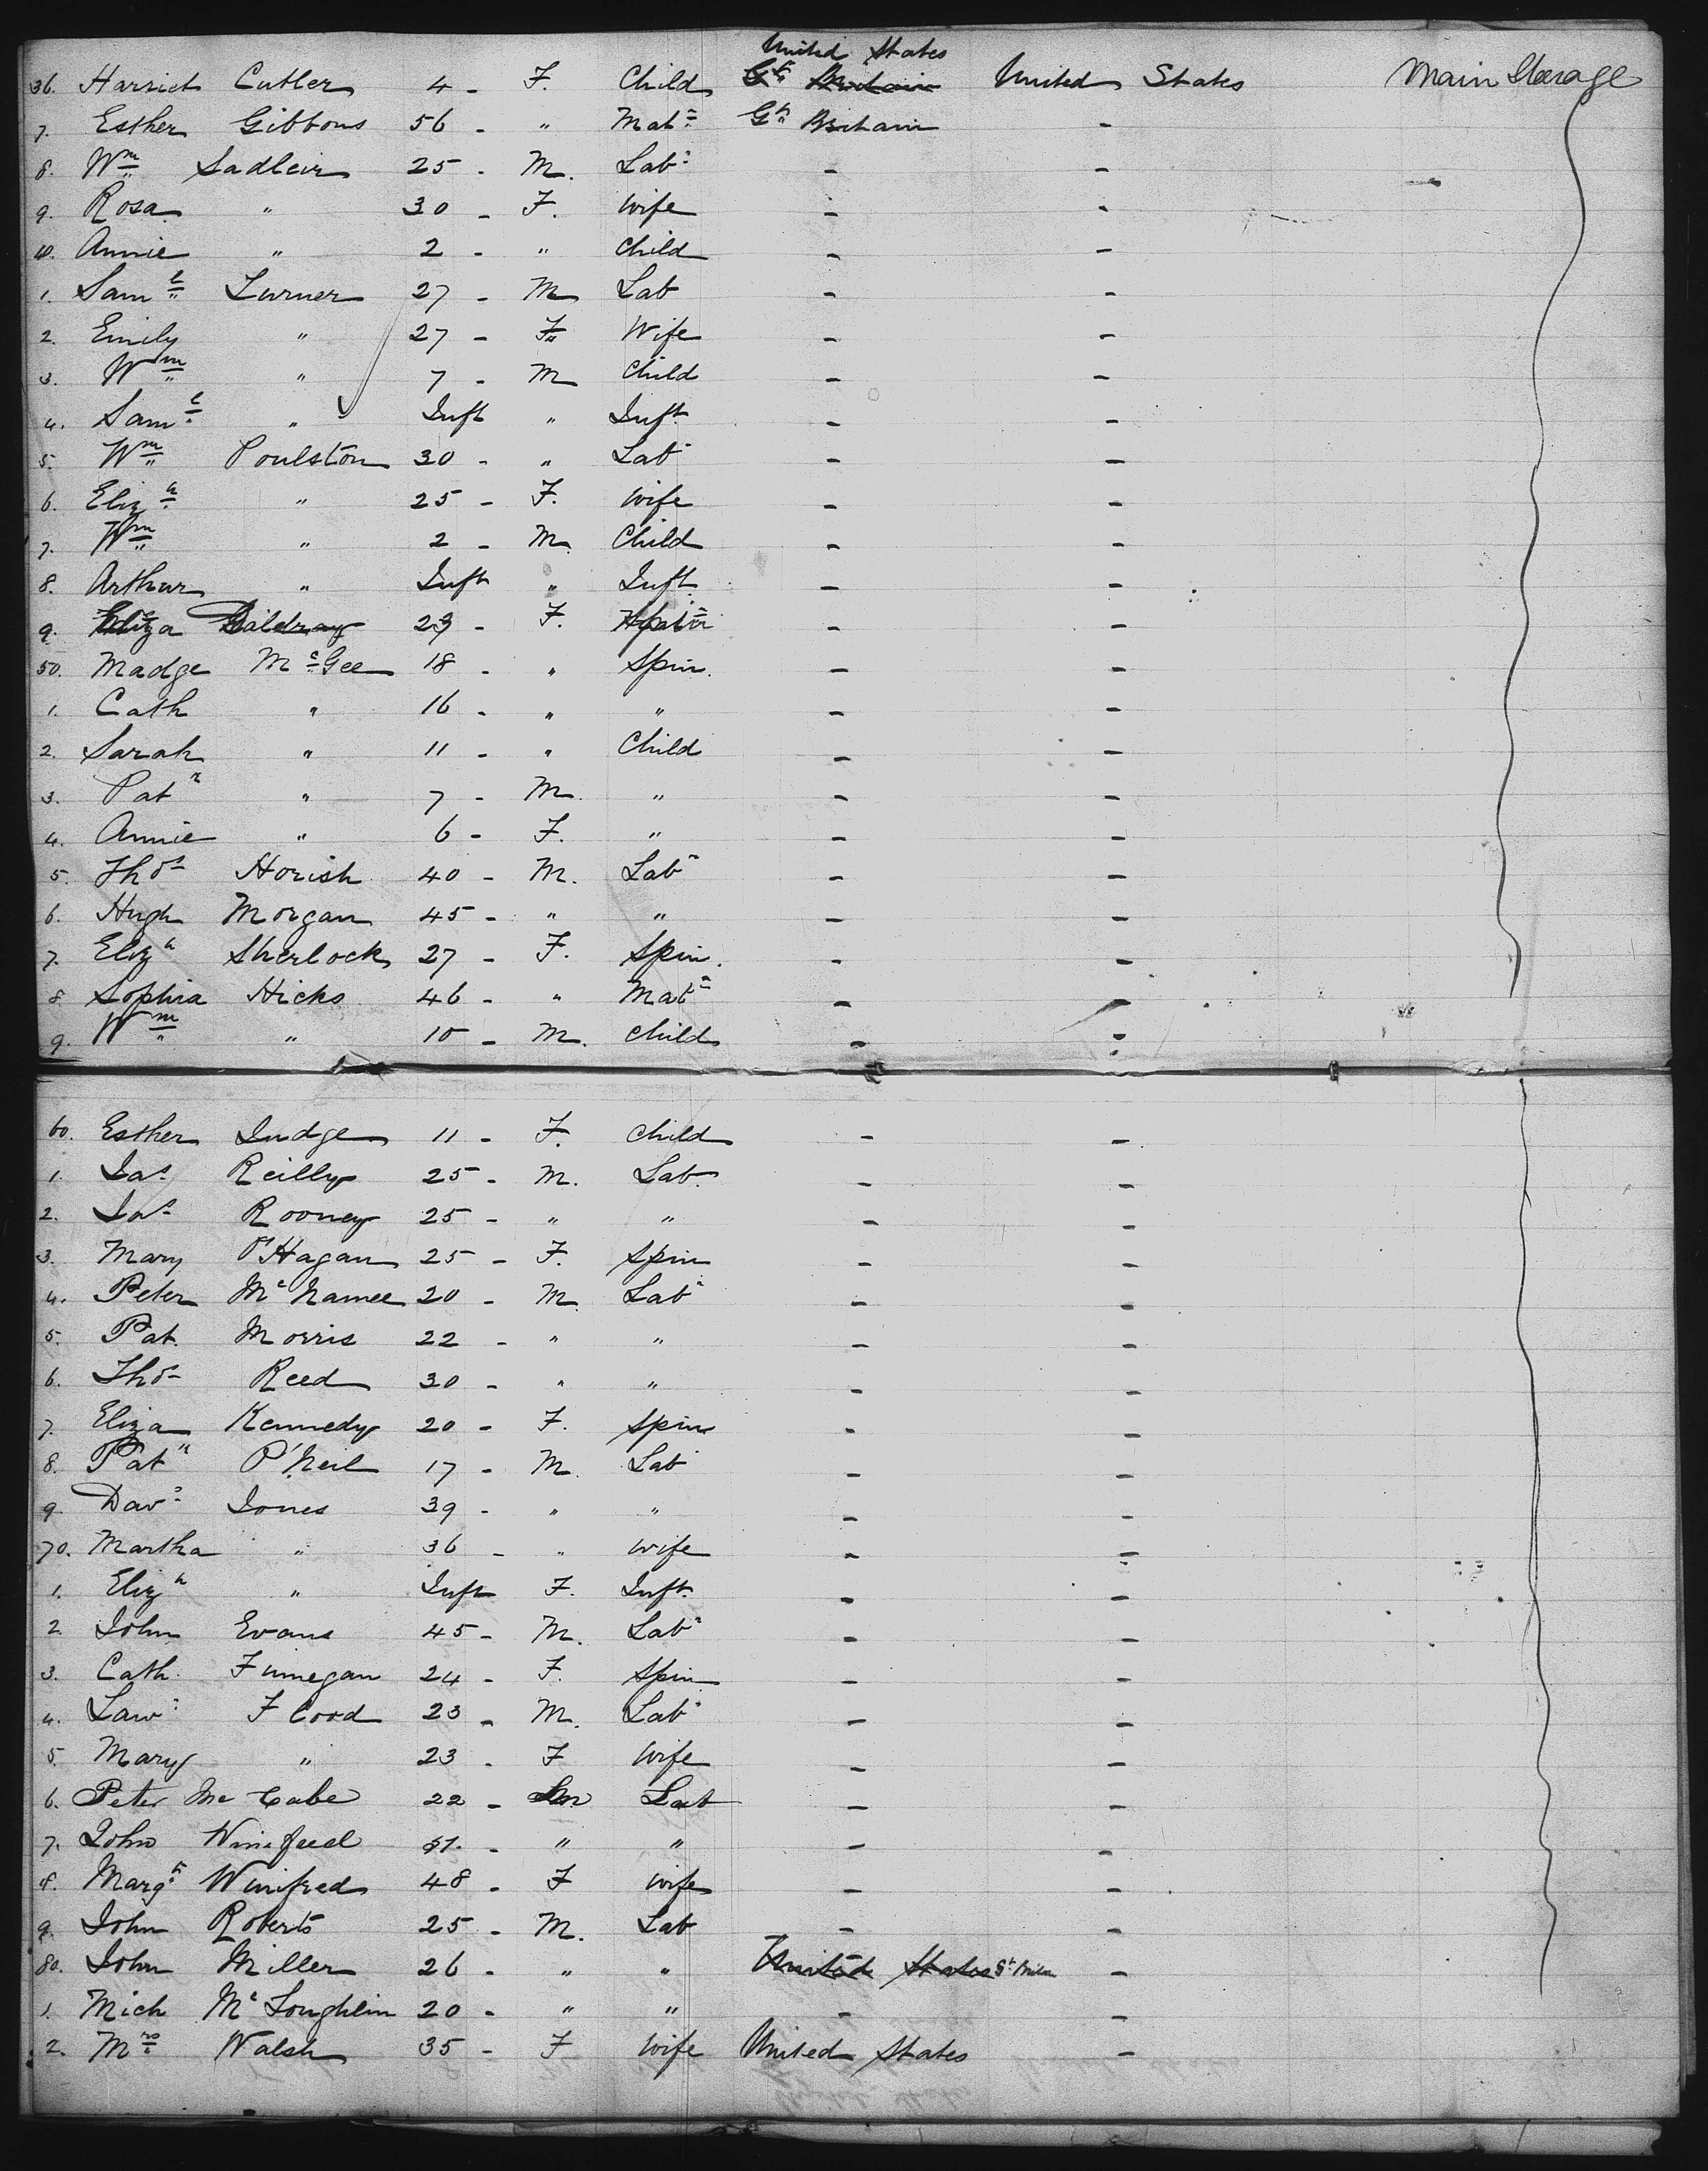 United States
36. Harriet Cutler 4 - F. Child Gt Britain United States Main Steerage
7. Esther Gibbons 56 - " Matn Gt Britain -
8. Wm Sadleir 25 - M. Labr - -
9. Rosa " 30 - F. Wife - -
40. Annie " 2 - " Child - -
1. Saml Turner 27 - M Lab - -
2. Emily " 27 - F. Wife - -
3. Wm " 7 - M Child - -
4. Saml " Inft " Inft - -
5. Wm Poulston 30 - " Labr - -
6. Elizh " 25 - F. Wife - -
7. Wm " 2 - M. Child - -
8. Arthur " Inft " Inft. - -
9. Eliza 29 - F. - -
50. Madge McGee 18 - " Spin. - -
1. Cath " 16 - " " - -
2. Sarah " 11 - " Child - -
3. Patk " 7 - M. " - -
4. Annie " 6 - F. " - -
5. Thos Horish 40 - M. Labr - -
6. Hugh Morgan 45 - " " - -
7. Elizh Sherlock 27 - F. Spin. - -
8. Sophia Hicks 46 - " Matn - -
9. Wm " 10 - M. Child - -
60. Esther Judge 11 - F. Child - -
1. Jas Reilly 25 - M. Labr - -
2. Jas Rooney 25 - " " - -
3. Mary O'Hagan 25 - F. Spin - -
4. Peter McNamee 20 - M Labr - -
5. Pat. Morris 22 - " " - -
6. Thos Reed 30 - " " - -
7. Eliza Kennedy 20 - F. Spin - -
8. Patk O'Neil 17 - M. Lab - -
9. Davd Jones 39 - " " - -
70. Martha " 36 - " Wife - -
1. Elizh " Inft F. Inft. - -
2. John Evans 45 - M. Labr - -
3. Cath. Finnegan 24 - F. Spin - -
4. Lawr Flood 23 - M. Labr - -
5. Mary " 23 - F Wife - -
6. Peter Mc Cabe 22 - M Lab - -
7. John Winifred - " " - -
8. Margt Winifred 48 - F Wife - -
9. John Roberts 25 - M. Lab - -
80. John Miller 26 - " " United States Gt Britn -
1. Mich McLoughlin 20 - " " - -
2. Mrs Walsh 35 - F Wife United States -